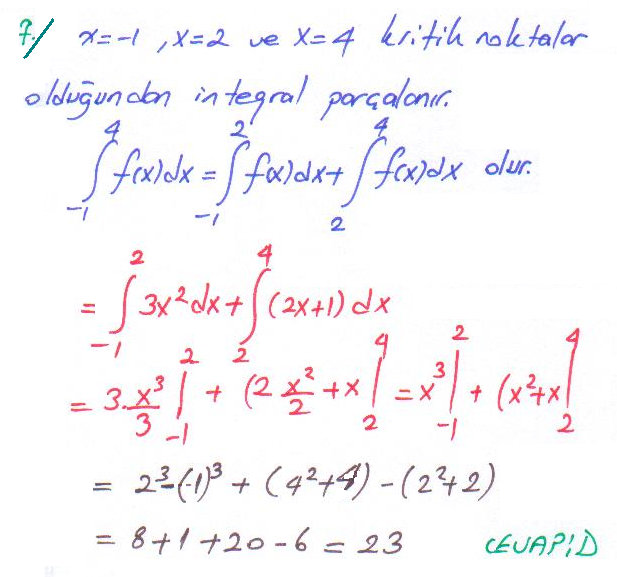 7./ x=-1 ,x=2 ve x=4 kritik noktalar
olduğundan integral parçalanır.
∫₋₁⁴ f(x)dx = ∫₋₁² f(x)dx + ∫₂⁴ f(x)dx olur.
= ∫₋₁² 3x²dx + ∫₂⁴ (2x+1) dx
= 3.x³/3 |₋₁² + (2 x²/2 + x |₂⁴ = x³ |₋₁² + (x²+x |₂⁴
= 2³-(-1)³ + (4²+4) - (2²+2)
= 8+1+20-6 = 23 CEVAP:D